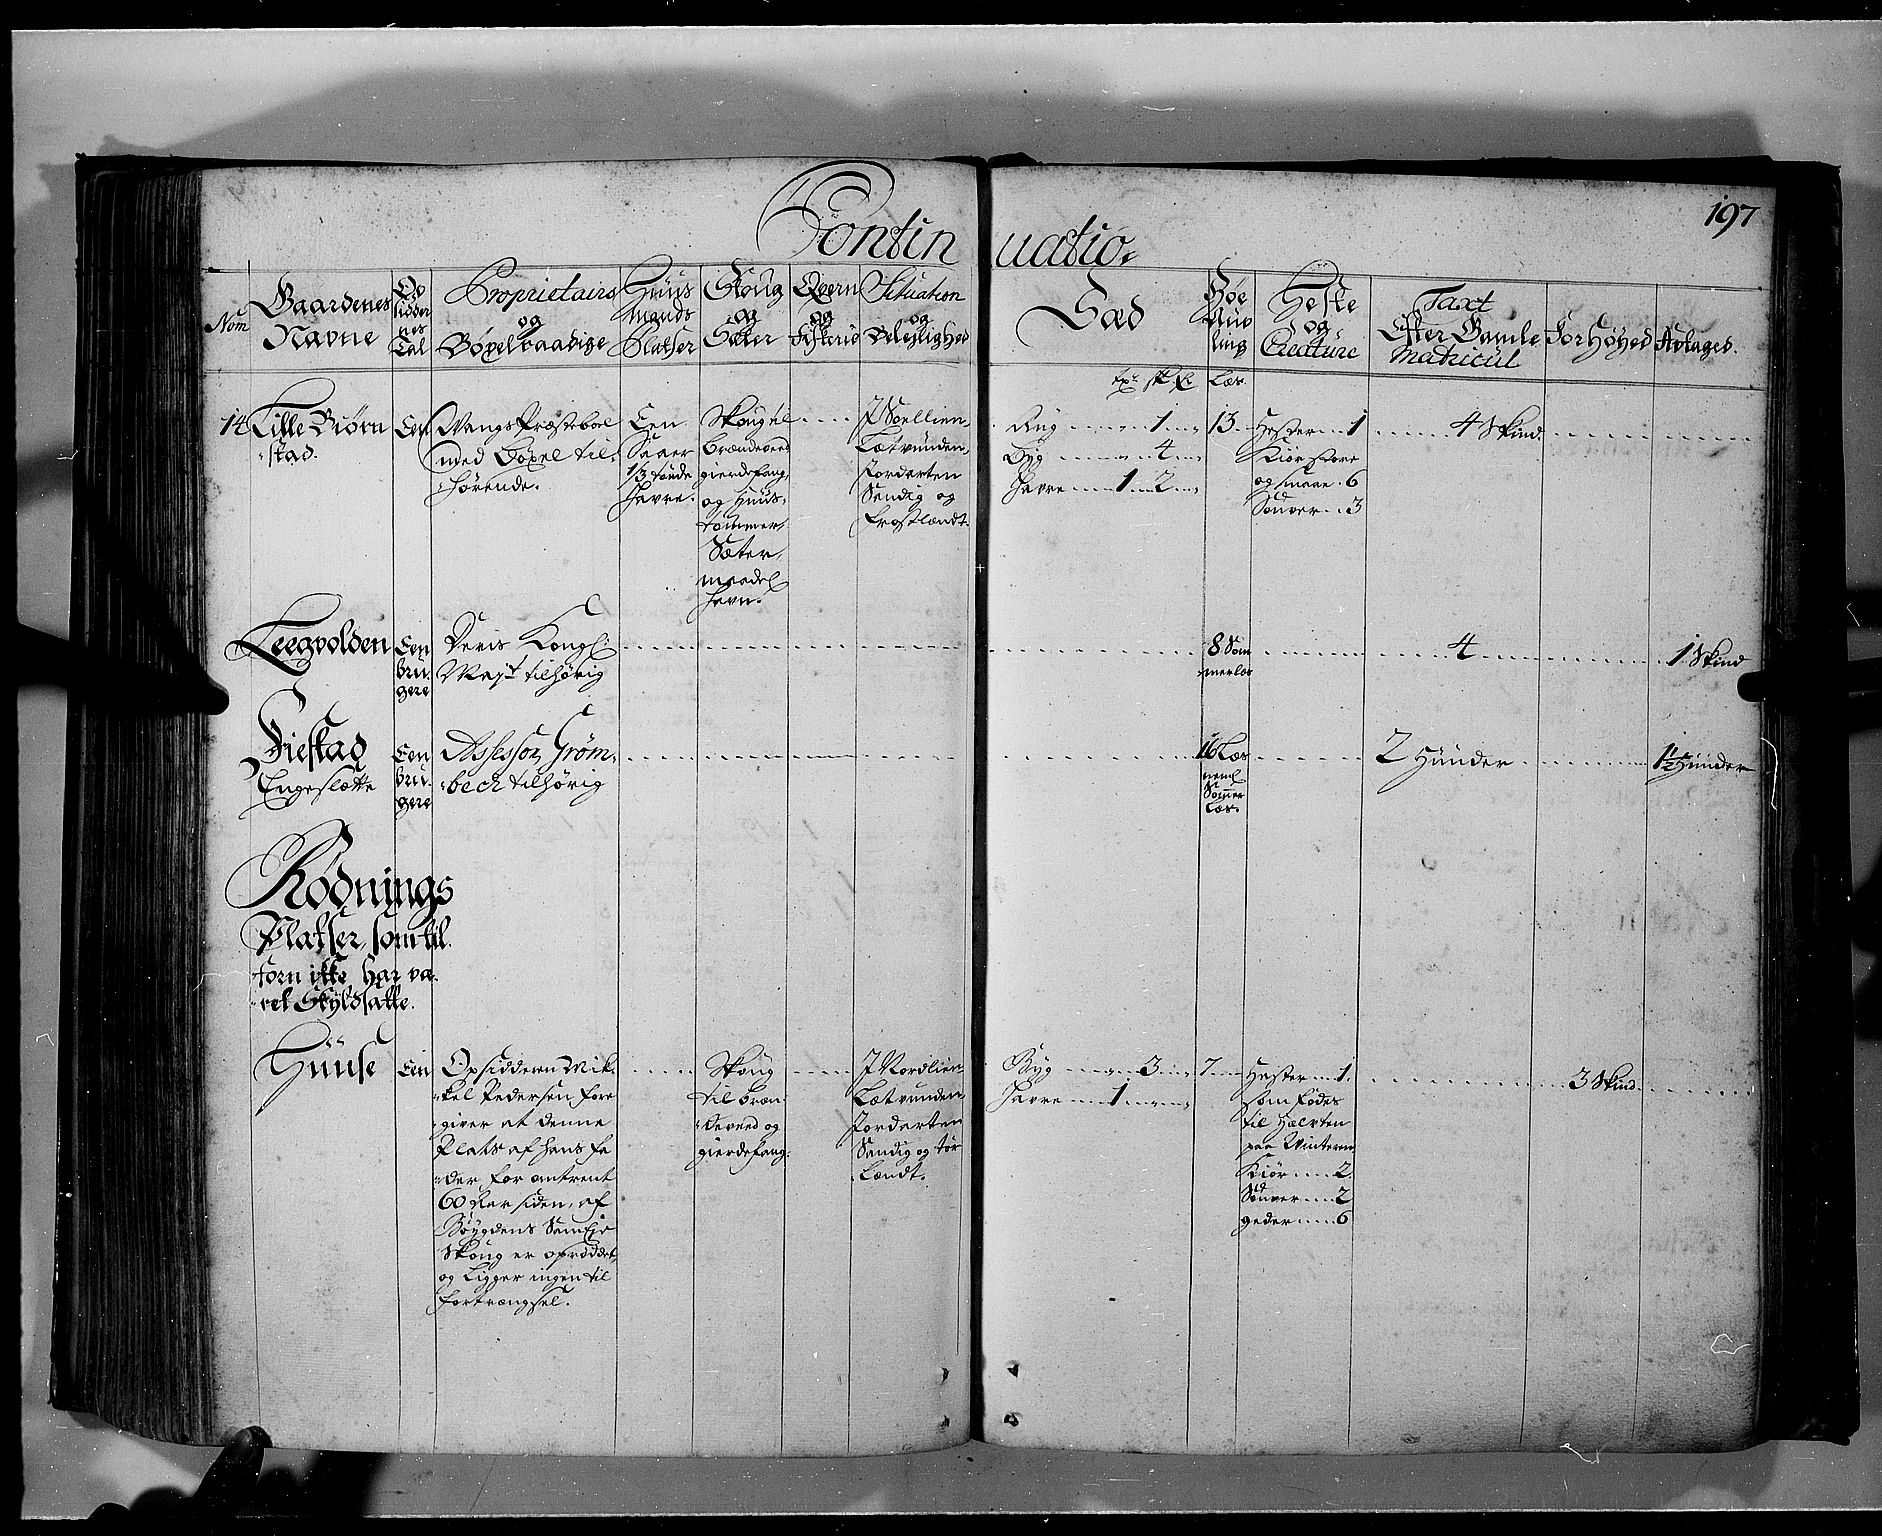 Contin uatio.
197
Nom
Gaardenes
Navne
Op
sidder
nes
Tal
Proprietairs
og
Bøxelraadige
Huus
Mands
Platser
Skoug
og
Sæter
Qvern
og
Fiskerie
Situation
og
Beleylighed
Sæd
Høe
Auv
ling
Heste
og
Creature
Taxt
Efter Gamle
Matricul
Forhøyed
Aftaged.
14
Lille Biørn
stad.
Een
Vangs Præsteboel
med Bøxel til
hørende.
Een
Saaer
1/3 tønde
Havre.
Skoug til
brændeveed
gierdefang,
og Huus
tømmer,
Sæter
med
havn.
I Soellien,
Letvunden,
Jordarten
Sandig og
frostlændt.
Læs
Rug 1
Byg 4
Havre 1 2
13
Hester 1
Kiør store
og smaae 6
Souver 3
4 Skind
Teegvolden
Een
bru
gere
Deris Kongl.
Mayt tilhørig
8 Som
merlæs
4
1 Skind
Fiestad
Engeslætte
Een
bru
gere
Assessor Grøm
bech tilhørig
16 Læs
neml
Sommer
Læs.
2 Hunder
1½ Hunder
Rødnings
Platser, som til
forn ikke har væ
ret Skyldsatte.
Huuse
Een
Opsidderen Mik
kel Pedersen fore
giver at denne
Plats af hans fa
der for omtrent
60 Aar siden, af
Bøygdens Sameje
Skoug er opröddet,
og Ligger ingen til
fortrængsel.
Skoug
til bræn
deveed og
gierdefang.
I Nordlien
Letvunden,
Jordarten
Sandig og tør
Lændt.
Byg 3
Havre 1
7
Hester 1
som fødes
til Hælvten
paa Vinteren
Kiør 2
Souver 2
geder 6
3 Skind